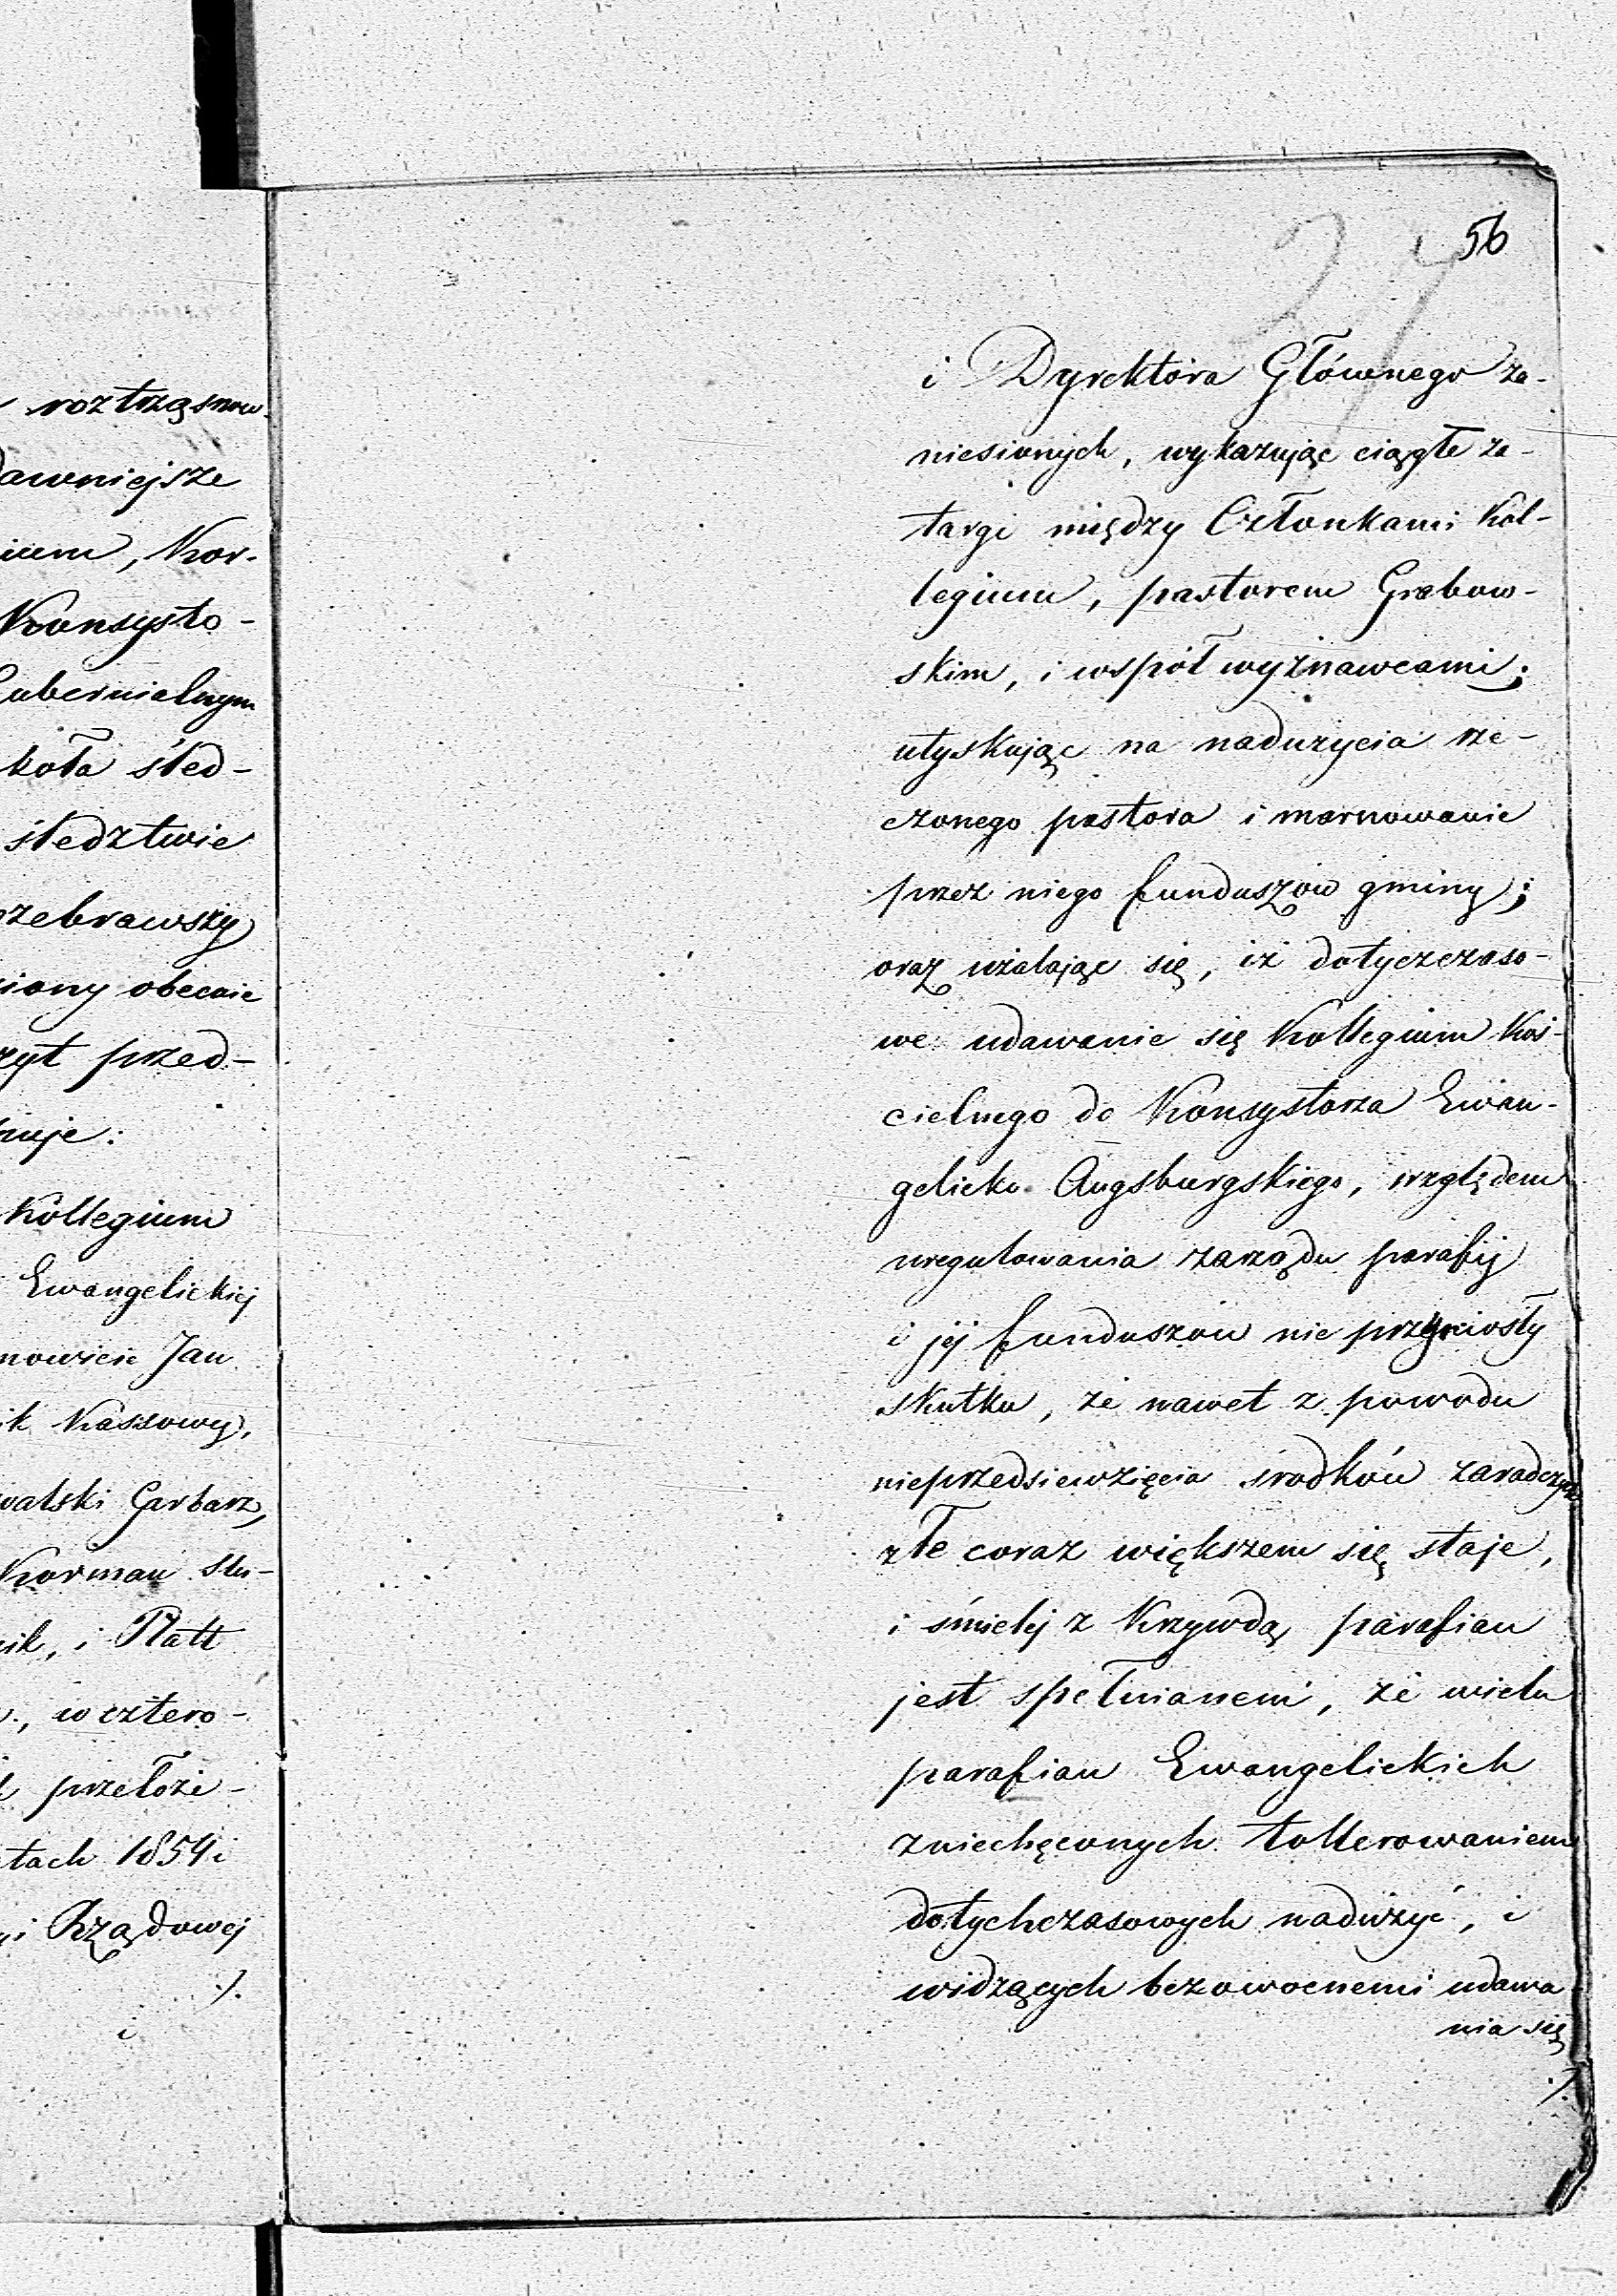 roztrząsnow-
dawniejsze
, Kor-
Konsysto-
Gubernialnym
koła śled-
śledztwie
zebrawszy
obecnie
przed-
Kollegium
Ewangelickiej
Jan
Kassowy,
Garbarz,
Korman Stu-
i Platt
w cztero-
przełoże-
1854 i
Rządowej
./.
i
56
27
i Dyrektora Głównego za-
niesionych, wykazując ciągłe za-
targi między Członkami Kol-
legium, pastorem Grabow-
skim, i współwyznawcami;
utyskując na nadużycia rze-
czonego pastora i marnowanie
przez niego funduszów gminy;
oraz użalając się, iż dotyczczaso-
we udawanie się Kollegium Koś-
cielnego do Konsystorza Ewan-
gelicko Augsburgskiego, względem
uregulowania zarządu parafij
i jej funduszów nie przyniosły
skutku, że nawet z powodu
nieprzedsiewzięcia środków zaradczych
złe coraz większem się staje,
i śmielej z Krzywdą parafian
jest spełnianem, że wielu
parafian Ewangelickich
zniechęconych tollerowaniem
dotychczasowych nadużyć, i
widzących bezowocnemi udawa
nia się
./.